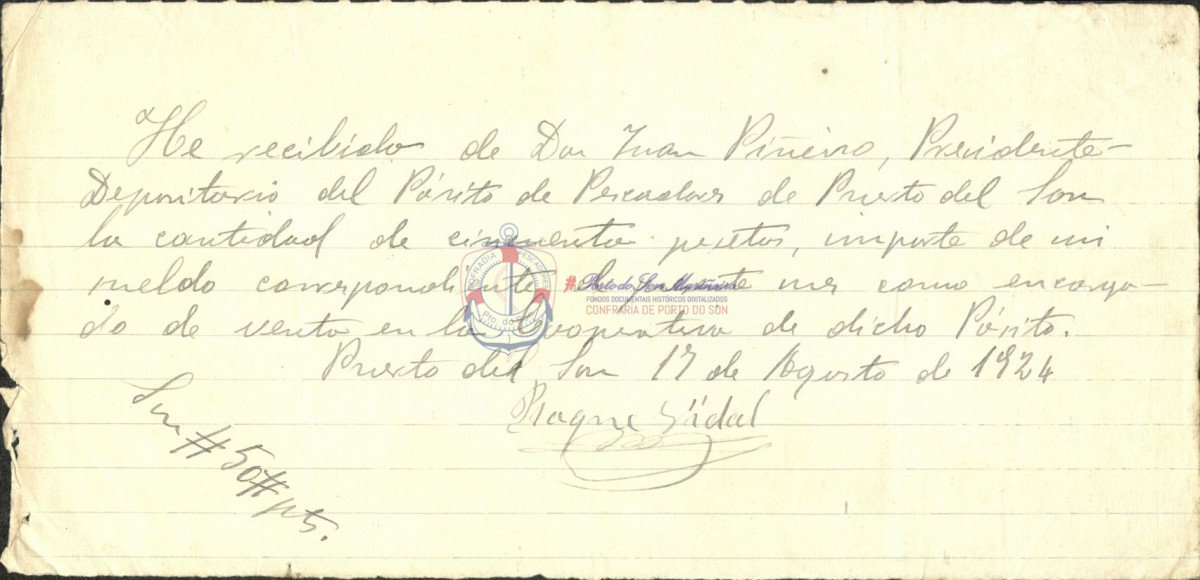 He recibido de Don Juan Piñeiro, Presidente-
Depositario del Pósito de Pescadores de Puerto del Son
la cantidad de cincuenta pesetas, importe de mi
sueldo correspondiente al mes como encarga-
do de venta en la Cooperativa de dicho Pósito.
Puerto del Son 17 de Agosto de 1924
Vidal
Son # 50 # pts.
COFRADIA PESCADORES
Pto. do Son
#Porto do Son Mariñeiro
FONDOS DOCUMENTAIS HISTÓRICOS DIXITALIZADOS
CONFRARÍA DE PORTO DO SON